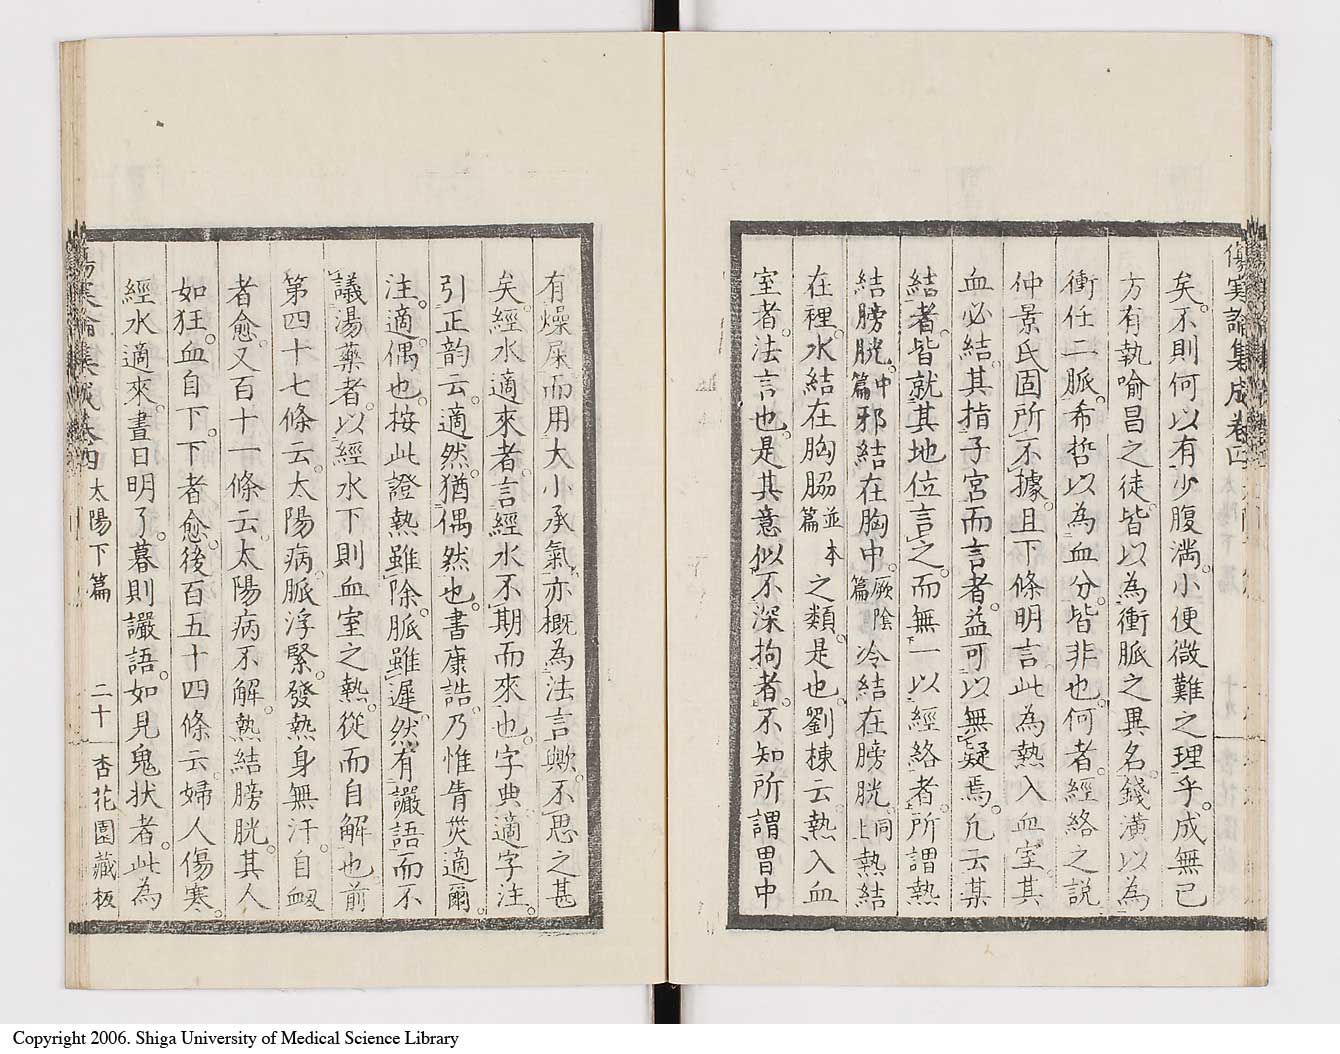 傷寒論集成卷四
矣。不則何以有少腹滿。小便微難之理乎。成無已
方有執喻昌之徒。皆以為衝脈之異名。錢潢以為
衝任二脈。希哲以為血分。皆非也。何者。經絡之說
仲景氏固所不據。且下條明言此為熱入血室。其
血必結。其指子宮而言者。益可以無疑焉。凡云某
結者。皆就其地位言之。而無一以經絡者。所謂熱
結膀胱。中篇邪結在胸中。厥陰篇冷結在膀胱。同上熱結
在裡。水結在胸脇並本篇之類。是也。劉棟云。熱入血
室者。法言也。是其意似不深拘者。不知所謂胃中
有燥屎而用大小承氣。亦概為法言歟。不思之甚
矣。經水適來者。言經水不期而來也。字典適字注。
引正韵云。適然猶偶然也。書康誥。乃惟眚烖適爾。
注。適。偶也。按此證熱雖除。脈雖遲。然有讝語而不
議湯藥者。以經水下則血室之熱。從而自解也。前
第四十七條云。太陽病。脈浮緊。發熱身無汗。自衄
者愈。又百十一條云。太陽病不解。熱結膀胱。其人
如狂。血自下。下者愈。後百五十四條云。婦人傷寒。
經水適來。晝日明了。暮則讝語。如見鬼狀者。此為
傷寒論集成卷四 太陽下篇 二十 杏花園藏板
Copyright 2006. Shiga University of Medical Science Library